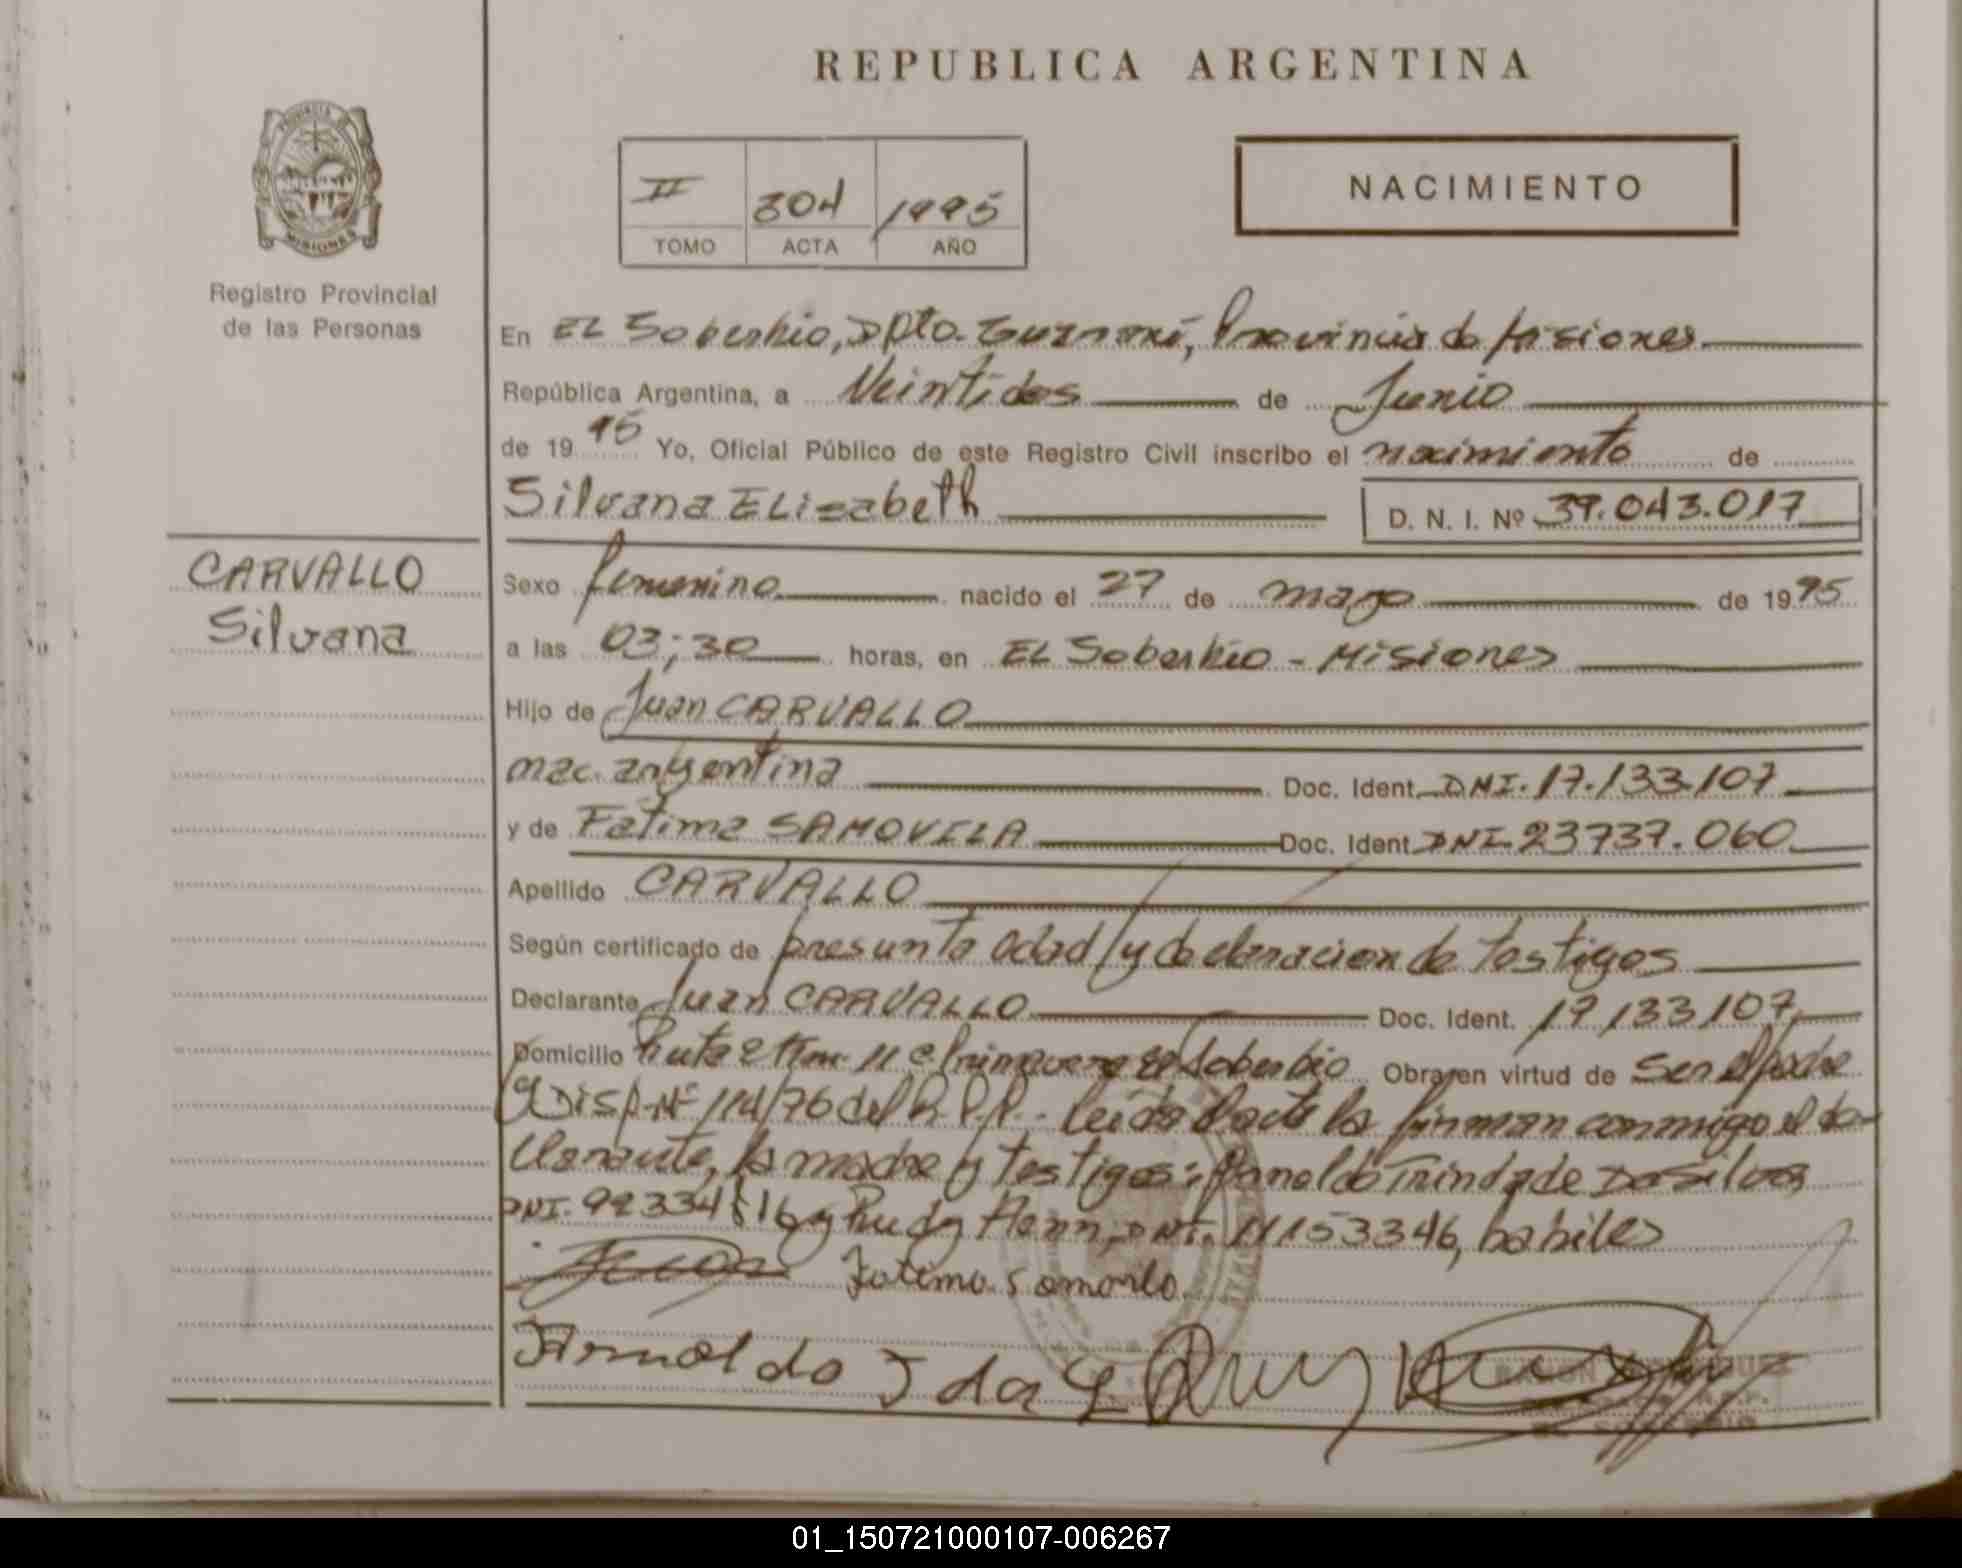 REPUBLICA ARGENTINA
PROVINCIA DE
MISIONES
Registro Provincial
de las Personas
II 304 1995
TOMO ACTA AÑO
NACIMIENTO
En EL Soberbio, Dpto. Guaraní, Provincia de Misiones
República Argentina, a Veintidos de Junio
de 1995 Yo, Oficial Público de este Registro Civil inscribo el nacimiento de
Silvana ELisabeth D. N. I. Nº 39.043.017
CARVALLO
Silvana
Sexo femenino nacido el 27 de mayo de 1995
a las 03;30 horas, en EL Soberbio - Misiones
Hijo de Juan CARVALLO
nac. argentina Doc. Ident. DNI. 17.133.107
y de Fatima SAMOVILA Doc. Ident DNI. 23737.060
Apellido CARVALLO
Según certificado de presunta edad y declaracion de testigos
Declarante Juan CARVALLO Doc. Ident. 17133107
Domicilio Ruta 2 Km. 11 Primavera El Soberbio Obra en virtud de Ser el padre
y Disp. Nº 114/76 del R.P.P.- Leida el acta la firman conmigo el de-
clarante, la madre y testigos: Arnoldo Trindade Da Silva
DNI. 92334516 y Rudy Henn, DNI. 11153346, habiles
Fatima
Arnoldo T da
01_150721000107-006267